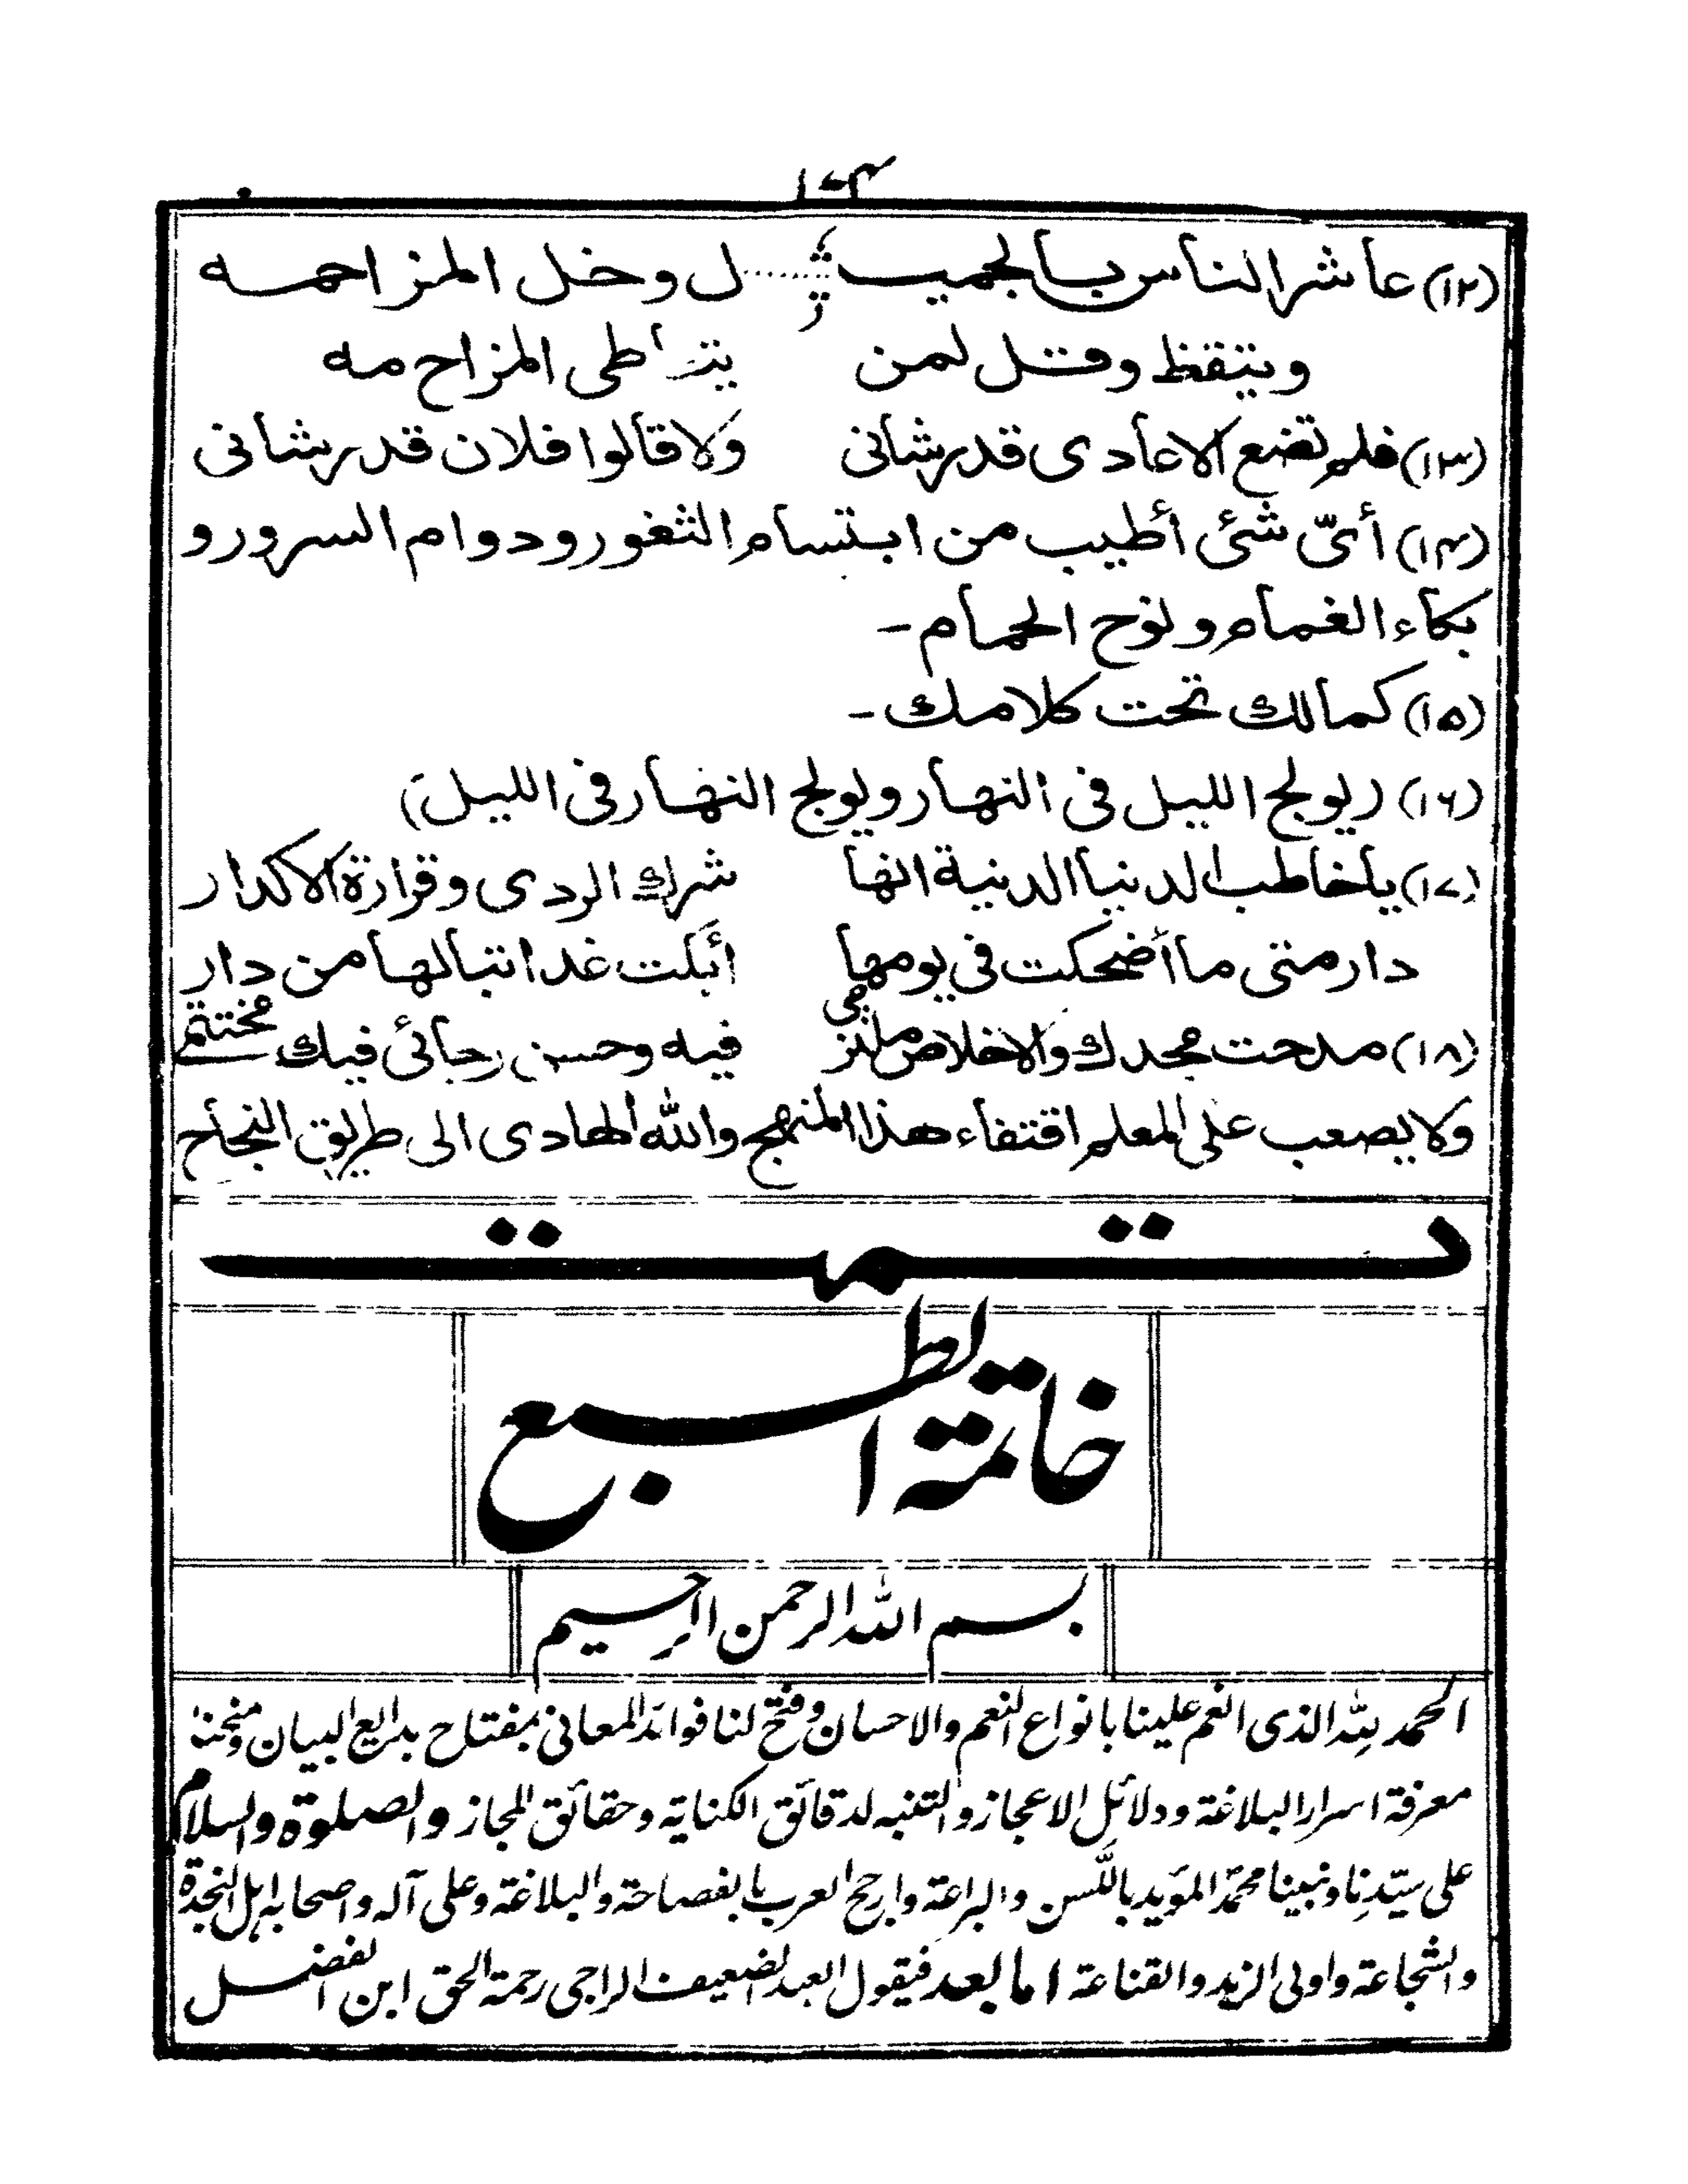 ١٦٣
(١٢) عاشر الناس بالجميـ ل وخل المزاحمه
وتيقظ وقل لمن يتعاطى المزاح مه
(١٣) فلم تضع الاعادى قدر شانى ولا قالوا فلان قد رشانى
(١٤) أىّ شئ أطيب من ابتسام الثغور ودوام السرور و
بكاء الغمام ونوح الحمام-
(١٥) كمالك تحت كلامك-
(١٦) (يولج الليل فى النهار ويولج النهار فى الليل)
(١٧) ياخاطب الدنيا الدنية انها شرك الردى وقرارة الاكدار
دار متى ما أضحكت فى يومها أبكت غدا تبالها من دار
(١٨) مدحت مجدك والاخلاص ملتزمى فيه وحسن رجائى فيك مختتمى
ولا يصعب على المعلم اقتفاء هذا المنهج والله الهادى الى طريق النجاح
تمت
خاتمة الطبع
بسم الله الرحمن الرحيم
الحمد لله الذى انعم علينا بانواع النعم والاحسان وفتح لنا فوائد المعانى بمفتاح بدايع البيان ومنحنا
معرفة اسرار البلاغة ودلائل الاعجاز والتنبه لدقائق الكناية وحقائق المجاز والصلوة والسلام
على سيّدنا ونبينا محمّد المؤيد باللَّسن والبراعة وارجح العرب بالفصاحة والبلاغة وعلى آله واصحابه اهل النجدة
والشجاعة واولى الزهد والقناعة اما بعد فيقول العبد الضعيف الراجى رحمة الحق ابن الفضل